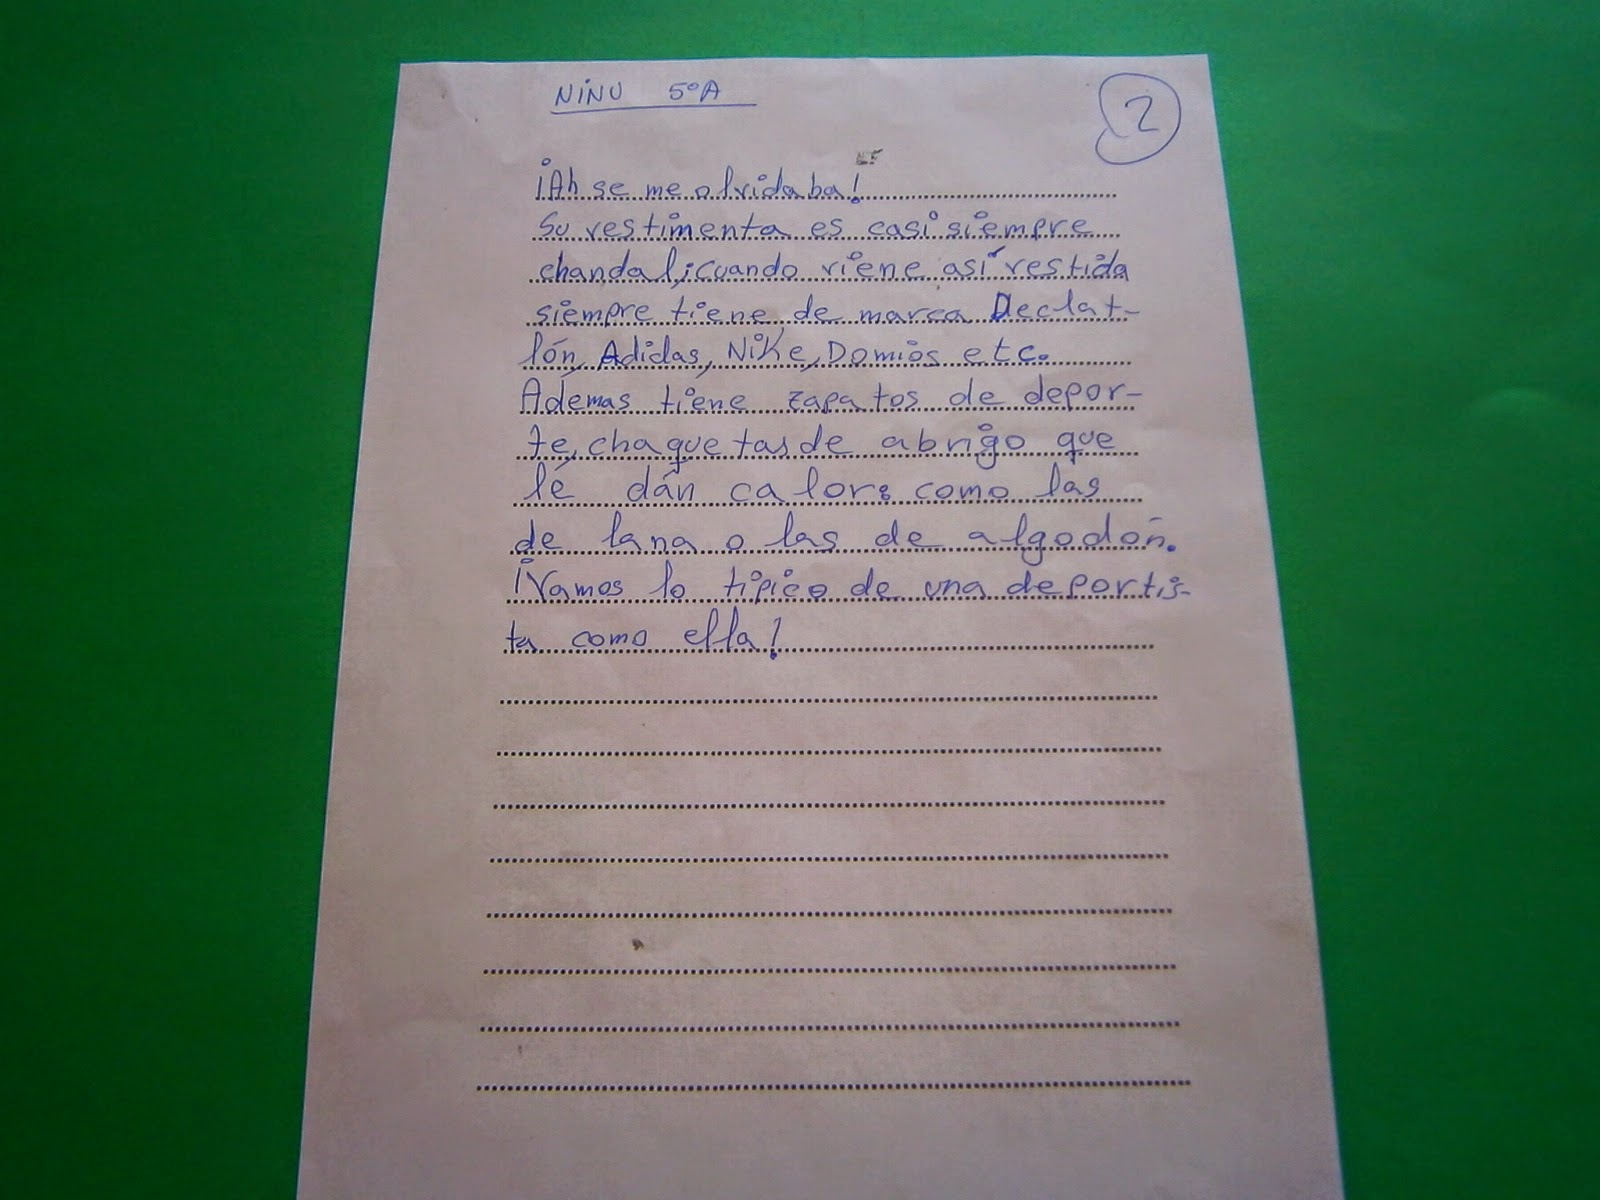 NiNU 5ºA
2
¡Ah se me olvidaba!
Su vestimenta es casi siempre
chandal; cuando viene así vestida
siempre tiene de marca Declat-
lón, Adidas, Nike, Domios etc.
Ademas tiene zapatos de depor-
te, chaquetas de abrigo que
lé dán calor: como las
de lana o las de algodón.
¡Vamos lo tipico de una deportis-
ta como ella!